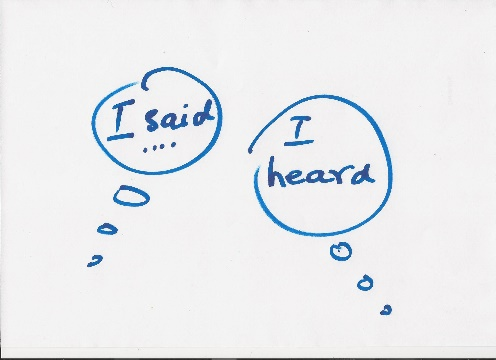 I said
....
I
heard